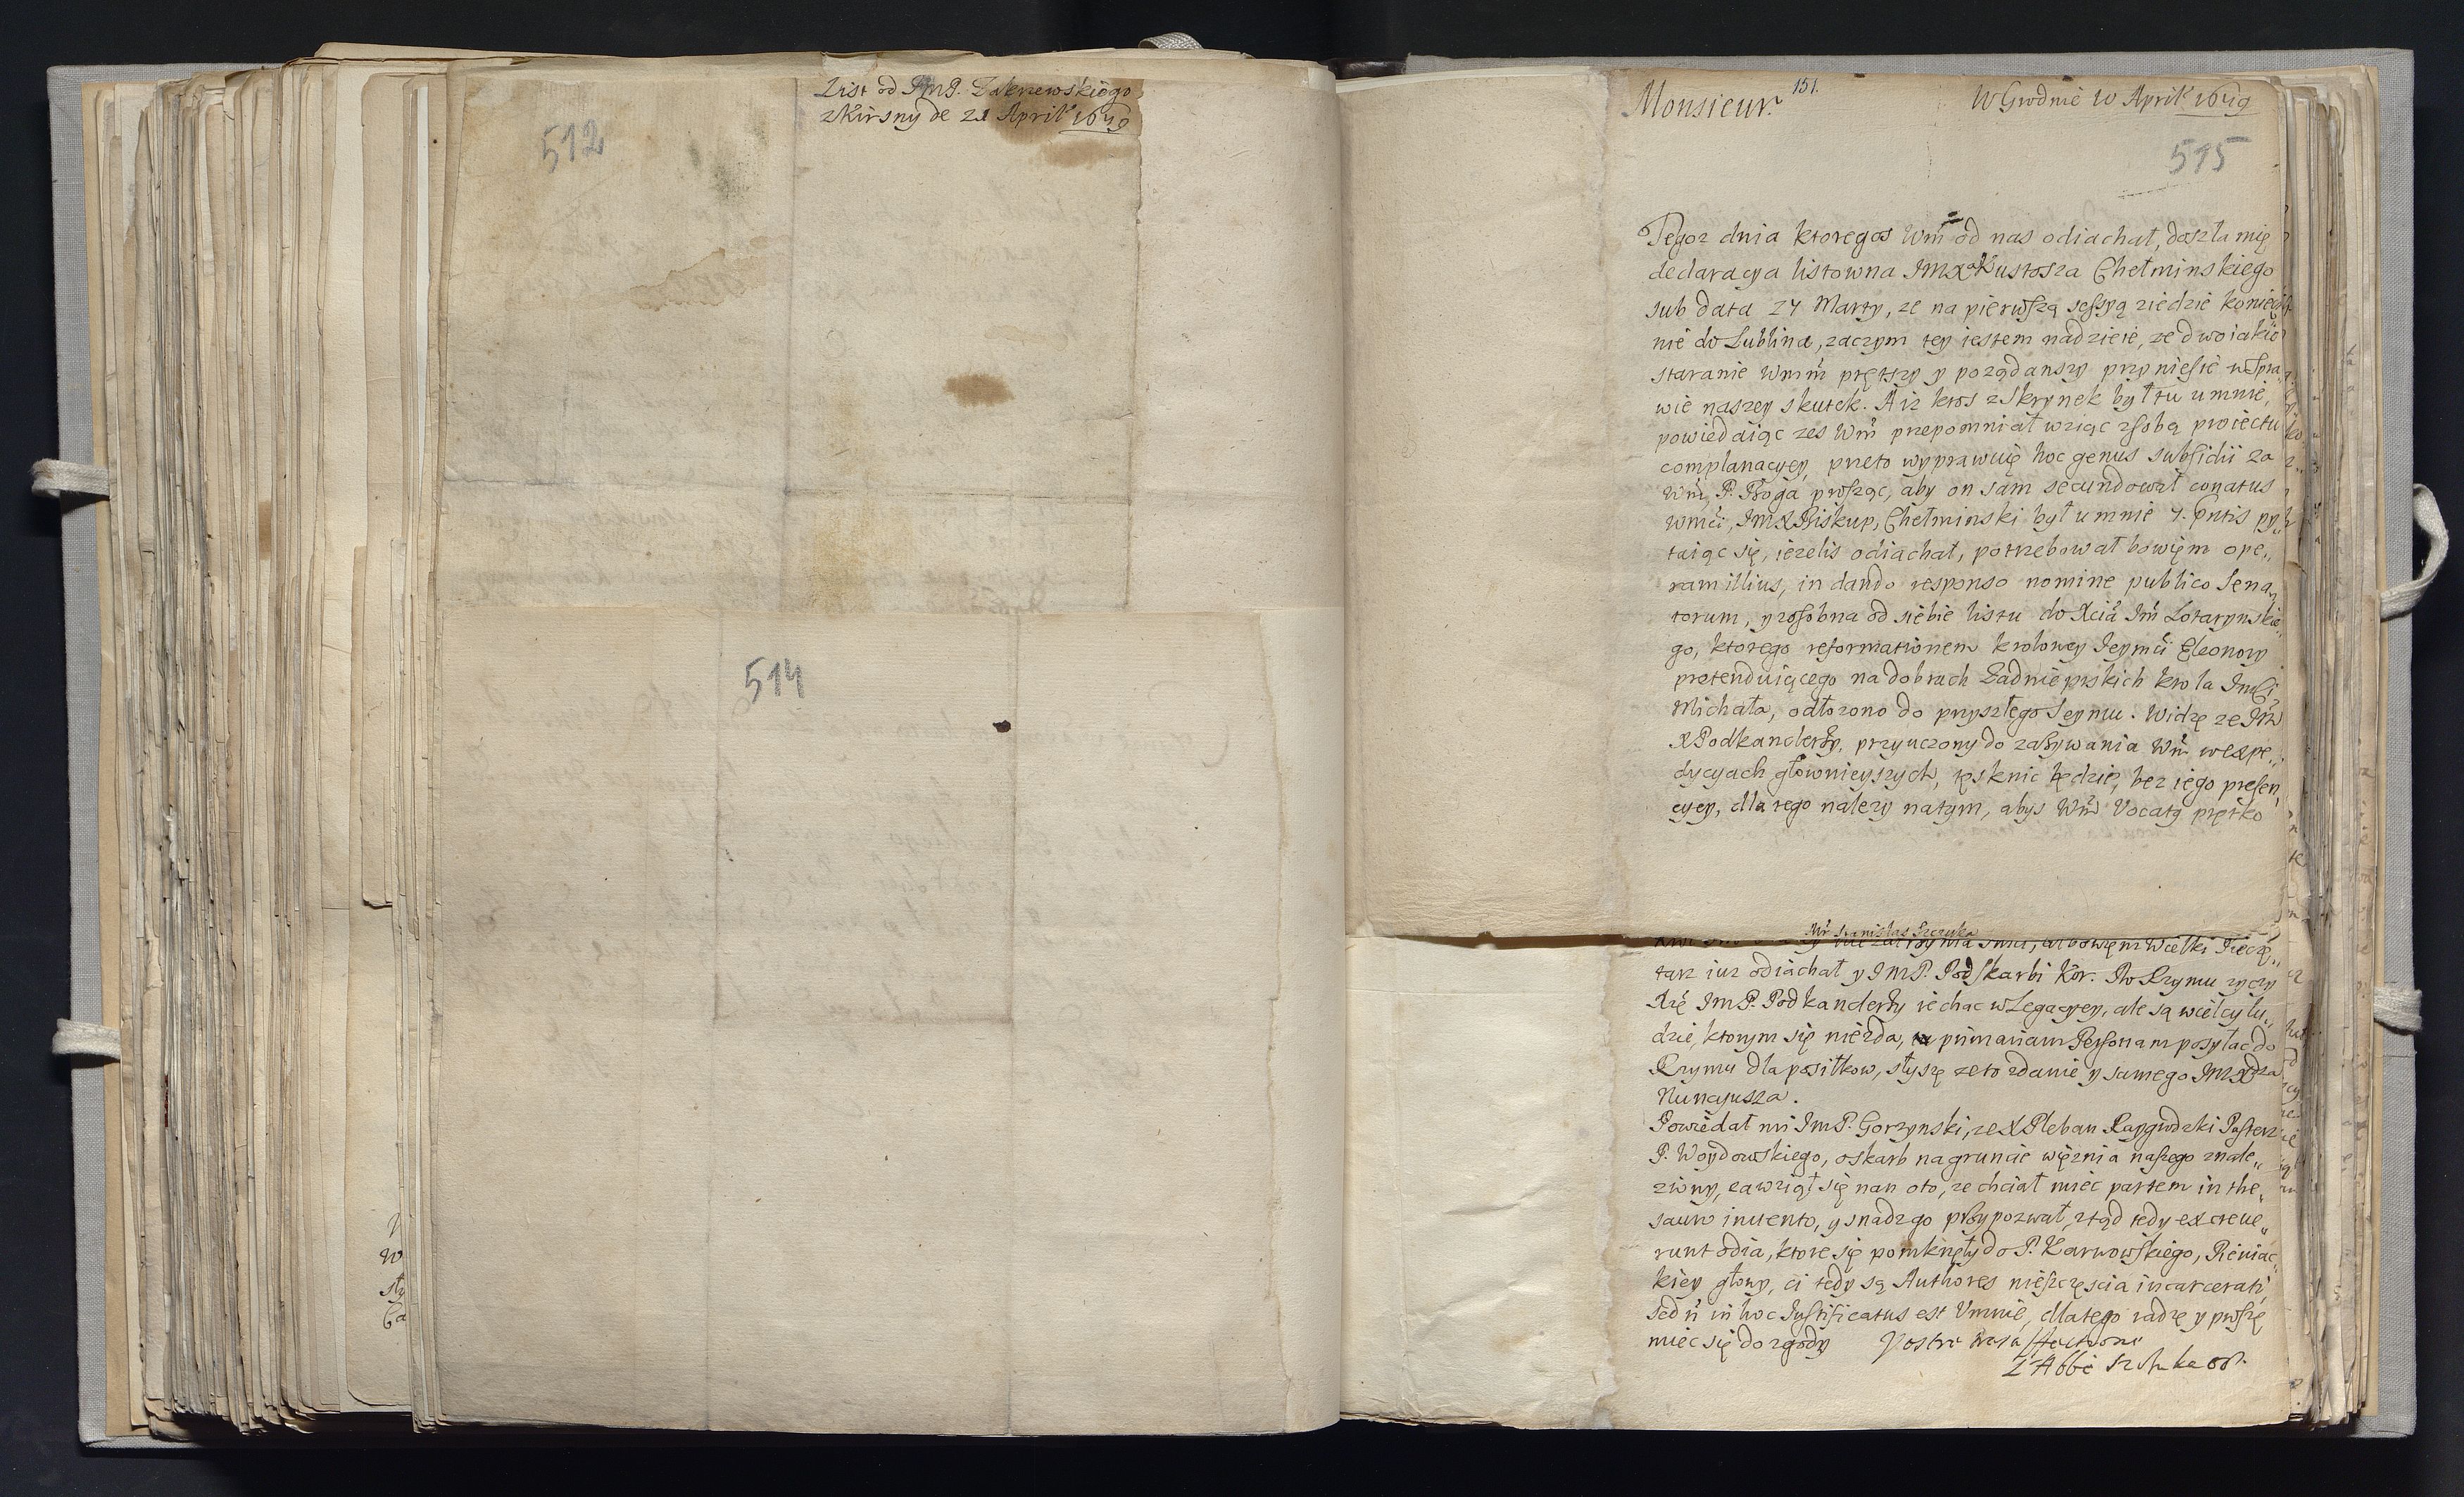 List od JmP. Zakrzewskiego
z Kirsny de 21 April 1679
512
514
Monsieur.
151.
W Grodnie 10 April 1679
515
Tegoz dnia ktoregos Wm od nas odiachał, doszła mię
declaracya listowna JmXa Kustosza Chełminskiego
sub data 24 Marty, ze na pierwszą sessyą ziedzie koniecz
nie do Lublina, zaczym tey iestem nadzieie, ze dwoiakie
staranie Wmm prętszy y pożądanszy przyniesie w Spra„
wie naszey skutek. A iz ktos z Skrynek był tu u mnie,
powiedaiąc zes Wm przepomniał wziąc z sobą proiectu
complanacyey, przeto wyprawuię hoc genus subsidii za
Wm, P. Boga prosząc, aby on sam secundował conatus
Wmci, JmX Biskup, Chełminski był u mnie 7. pntis py„
taiąc się, iezelis odiachał, potrzebował bowięm ope„
ram illius, in dando responso nomine publico Sena„
torum, y zosobna od siebie listu do Xcia Jm Lotarynskie„
go, ktorego reformationem krolowey Jeymci Eleonory
pretenduiącego na dobrach Zadnieprskich krola Jmci
Michała, odłozono do przyszłego Seymu. Widzę ze Jm
X Podkanclerzy, przyuczony do zazywania Wm w expe„
dycyach głownieyszych, tęsknic będzie, bez iego presen„
cyey, dla tego nalezy na tym, abys Wm Vocatą prętko
Mr Stanislas Szczuka
albowięm Wielki Pieczę„
tarz iuz odiachał y JmP. Podskarbi Kor. Do Rzymu zyczy
Xię JmP. Podkanclerzy iechac w Legacyey, ale są wielcy lu„
dzie, ktorym się niezda, primariam Personam posyłac do
Rzymu dla posiłkow, słyszę ze to zdanie y samego JmXdza
Nuncyusza.
Powiedał mi JmP. Gorzynski, ze X Pleban Raygrodzki Pasterz
P. Woydowskiego, o skarb na gruncie więznia naszego znale„
ziony, zawziął się nan oto, ze chciał miec partem in the„
sauro inuento, y snadz go przypozwał, ztąd tedy excreue„
runt odia, ktore się pomknęły do P. Karwowskiego, Pieniac„
kiey głowy, ci tedy są Authores nieszczęscia incarcerati,
sed n in hoc Justificatus est Vmnie, dlatego radzę y proszę
miec się do zgody Vostre tres affectionne
L'Abbé Szczuka